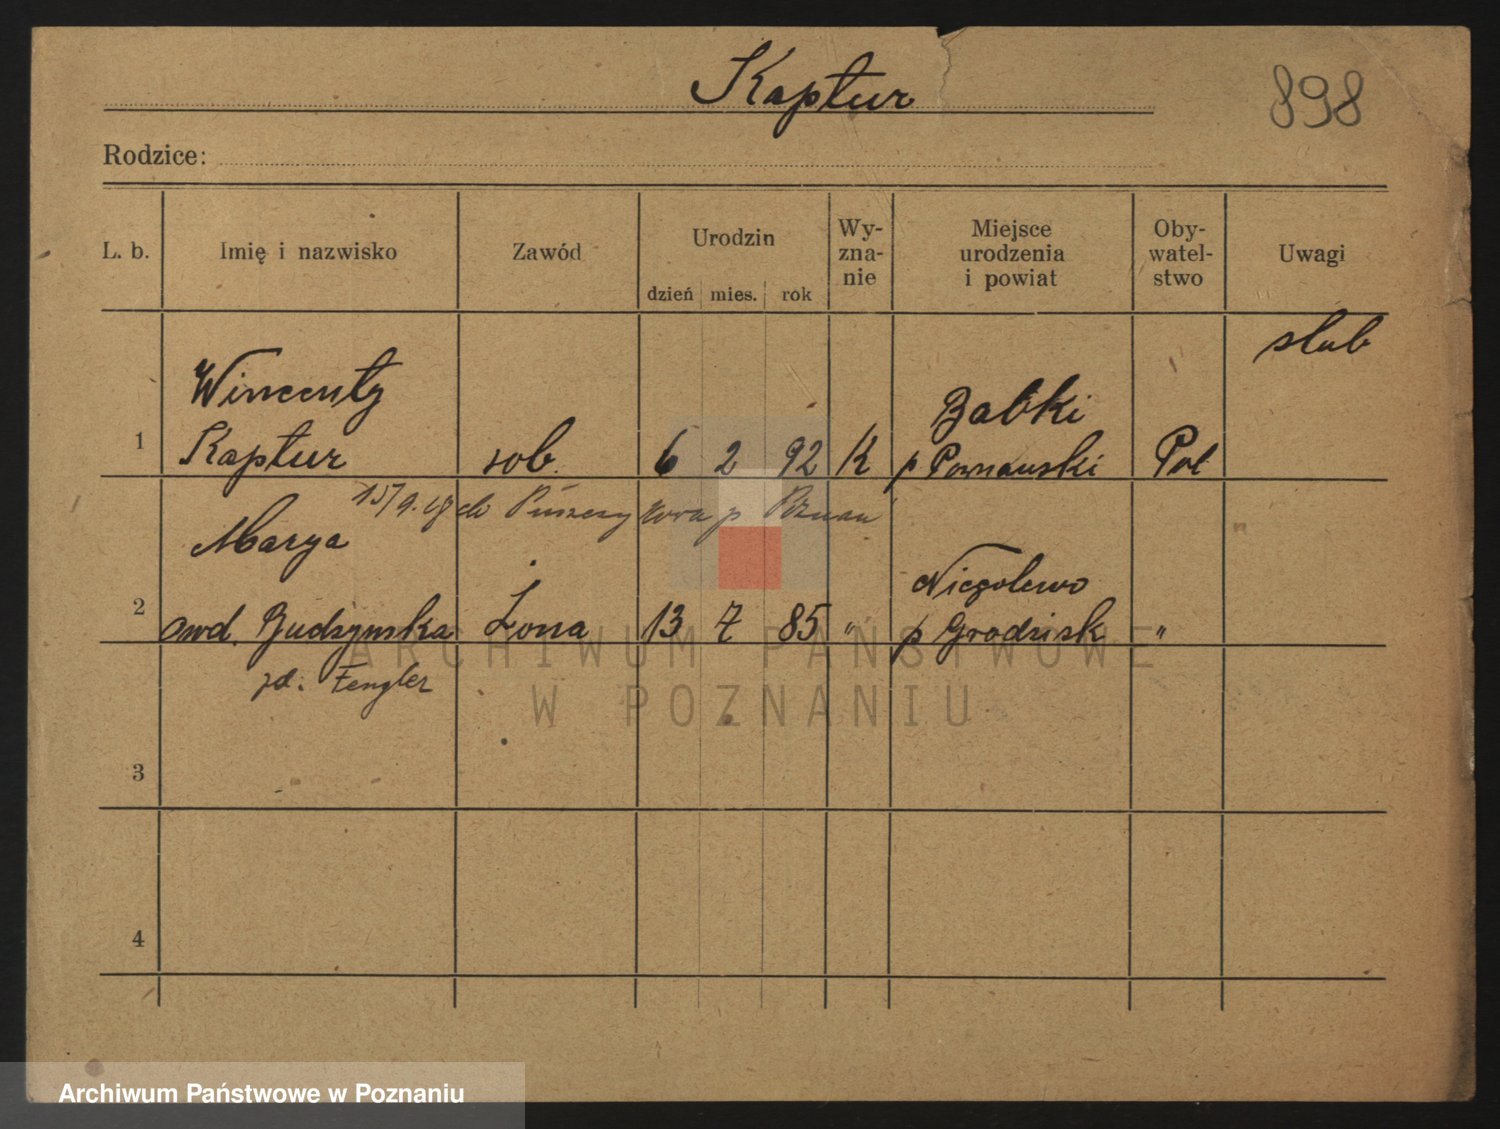 Kaptur
898
Rodzice:
L. b.
Imię i nazwisko
Zawód
Urodzin
dzień mies. rok
Wy-
zna-
nie
Miejsce
urodzenia
i powiat
Oby-
watel-
stwo
Uwagi
ślub
1
Wincenty
Kaptur
rob.
6 2 92
K
Babki
p Poznański
Pol
15/9. do
p Poznań
2
Marya
owd. Budzynska
Żona
13 7 85
"
Niegolewo
p Grodzisk
"
zd. Fengler
3
4
ARCHIWUM PAŃSTWOWE
W POZNANIU
Archiwum Państwowe w Poznaniu